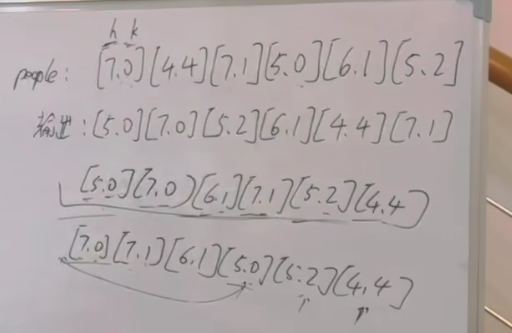 h k
people: [7.0][4.4][7.1][5.0][6.1][5.2]
输出:[5.0][7.0][5.2][6.1][4.4][7.1]
[5.0](7.0)[6.1][7.1][5.2][4.4)
[7.0][7.1][6.1][5.0][5.2][4.4]